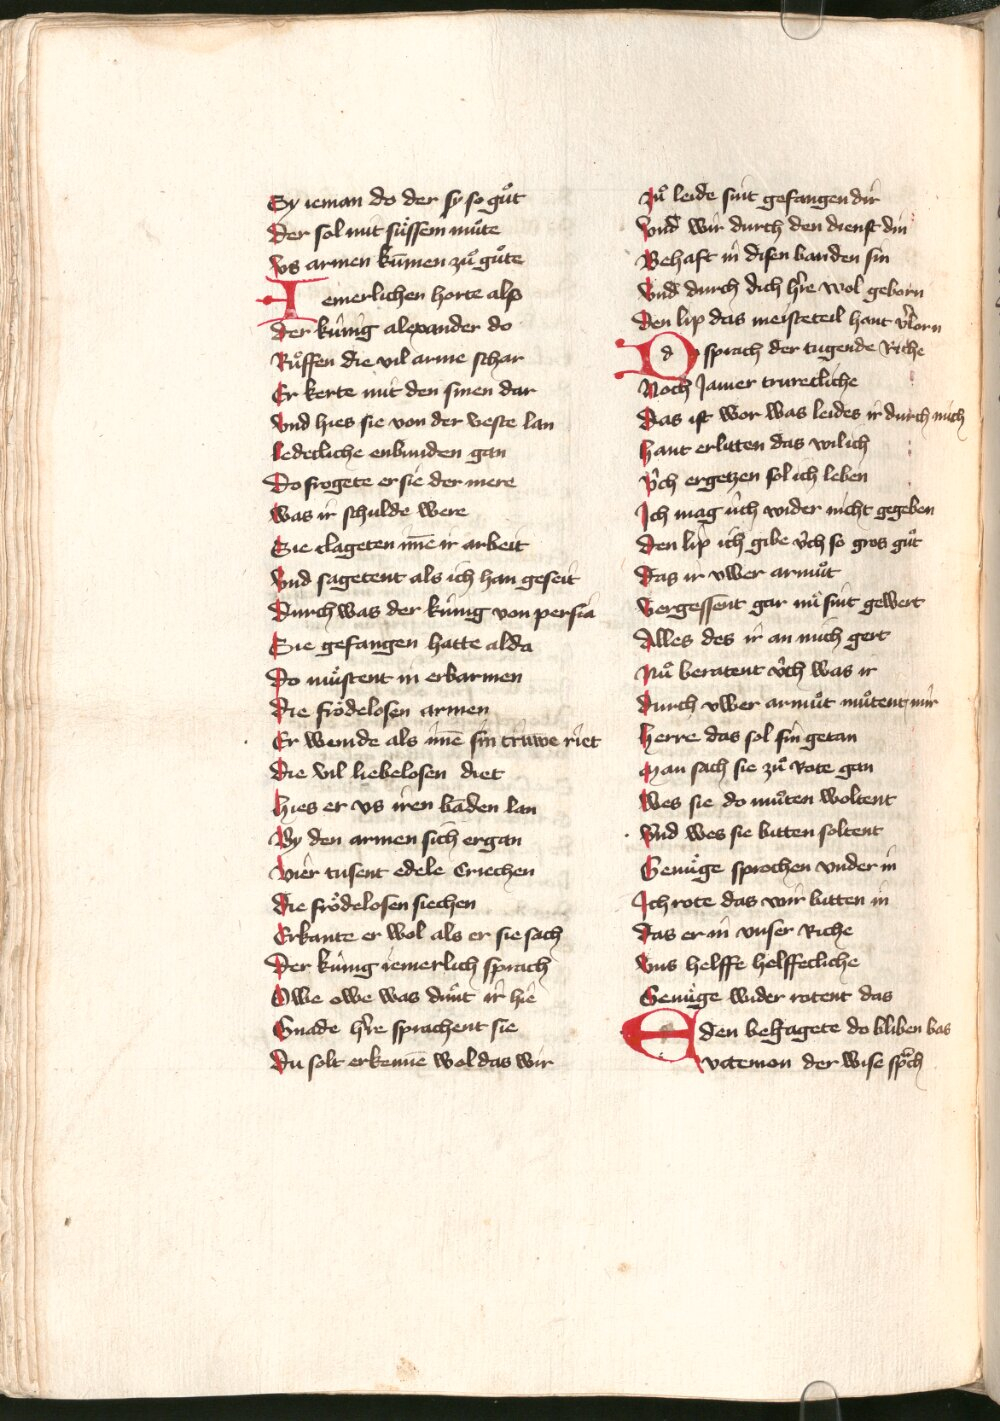 Sy ieman do der sy so guͦt
Der sol mit suͤssem muͦte
Vs armen kūmen zuͦ guͦte
Iemerlichen horte alß
Der kúnig alexander do
Ruͦffen die vil arme schar
Er kerte mit den sinen dar
Vnd hies sie von der veste lan
Ledecliche enbinden gan
Do frogete er sie der mere
Was ir schulde were
Sie clageten im̄e ir arbeit
Vnd sagetent als ich han geseit
Durch was der kúnig von persia
Sie gefangen hatte alda
Do muͤstent in erbarmen
Die froͤdelosen armen
Er weinde als im̄e sin trúwe riet
Die vil liebelosen diet
Hies er vs iren bāden lan
By den armen sich ergan
Vier tusent edele Criechen
Die froͤdelosen siechen
Erkante er wol als er sie sach
Der kúnig iemerlich sprach
Owe owe was duͦt ir hie
Gnade h're sprachent sie
Du solt erkenne wol das wir
Zuͦ leide sint gefangen dir
Vnd wir durch den dienst din
Behaft in disen banden sin
Vnd durch dich h're wol geborn
Den lip das meisteteil hant v'lorn
Do sprach der tugende Riche
Noch Jamer trurecliche
Das ist wor was leides ir durch mich
Hant erlitten das wil ich
V́ch ergetzen sol ich leben
Ich mag úch wider nicht gegeben
Den lip ich gibe v́ch so gros guͦt
Das ir vwer armuͦt
Vergessent gar nuͦ sint gewert
Alles des ir an mich gert
Nuͦ beratent v́ch was ir
Durch vwer armuͦt muͦtent mir
Herre das sol sin getan
Man sach sie zuͦ Rote gan
Wes sie do muͦten woltent
Vnd wes sie bitten soltent
Genuͤge sprochen vnder in
Ich rote das wir bitten in
Das er in vnser Riche
Vns helffe helffecliche
Genuͤge wider rotent das
Den behagete do bliben bas
Evctemon der wise sprach